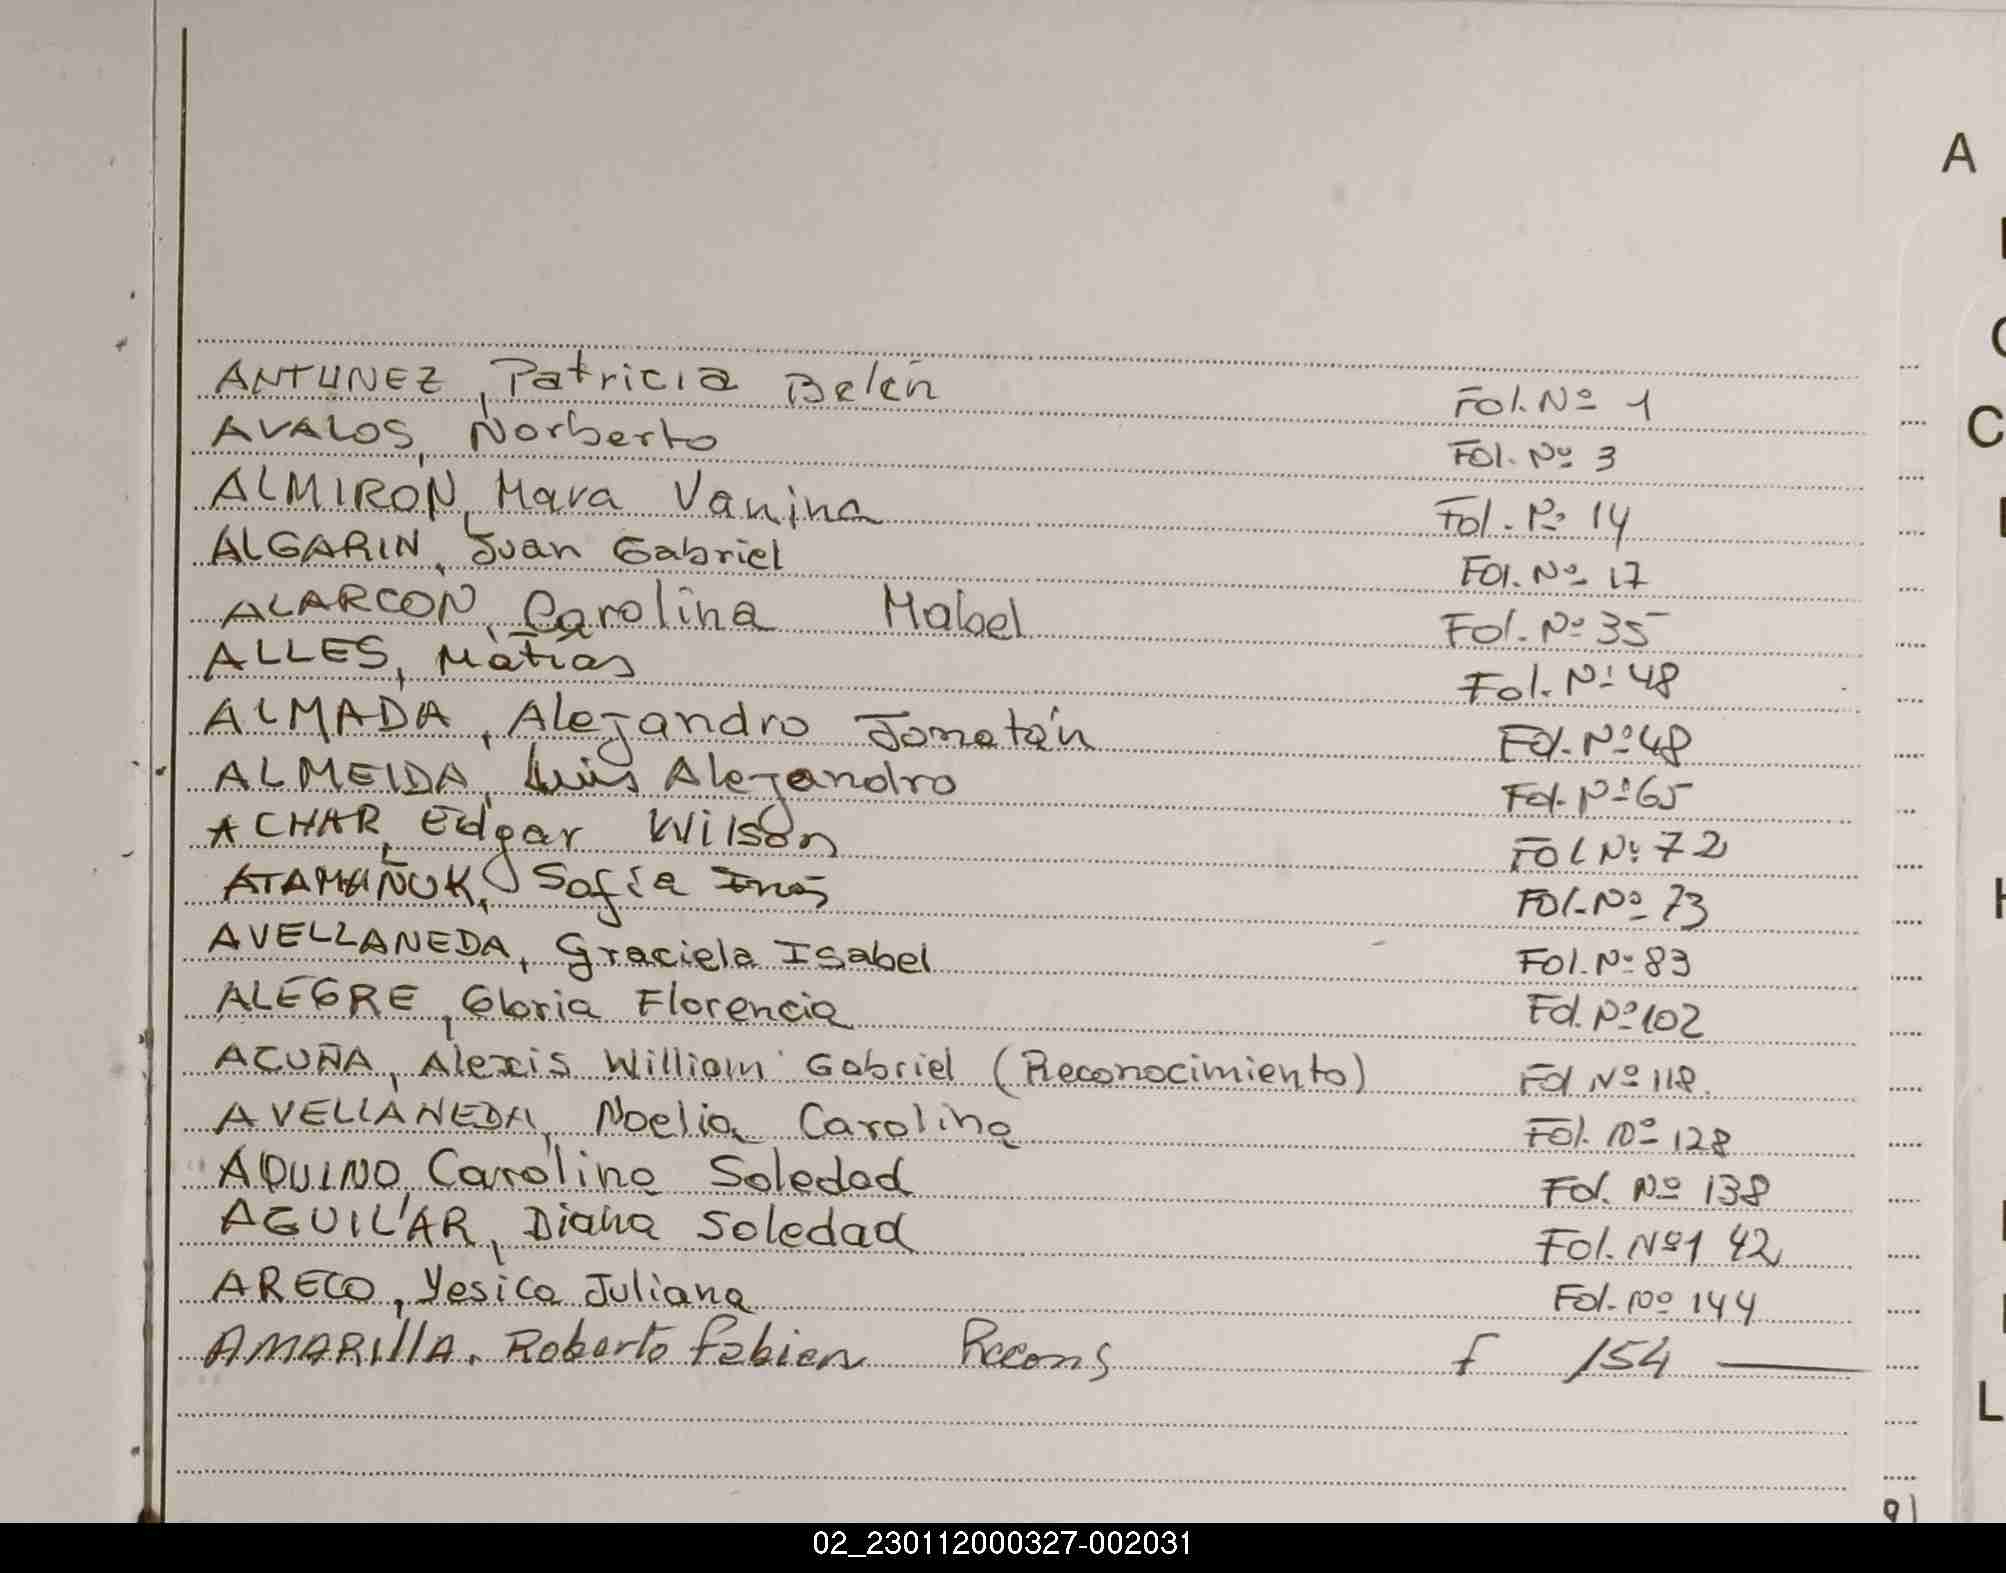 A
ANTUNEZ, Patricia Belén Fol. Nº 1
AVALOS, Norberto Fol. Nº 3
C
ALMIRON, Mara Vanina Fol. Nº 14
ALGARIN, Juan Gabriel Fol. Nº 17
ALARCON, Carolina Mabel Fol. Nº 35
ALLES, Matías Fol. Nº 48
ALMADA, Alejandro Jonatán Fol. Nº 48
ALMEIDA, Luis Alejandro Fol. Nº 65
ACHAR, Edgar Wilson Fol Nº 72
ATAMAÑUK, Sofía Inés Fol. Nº 73
AVELLANEDA, Graciela Isabel Fol. Nº 83
ALEGRE, Gloria Florencia Fol. Nº 102
ACUÑA, Alexis William Gabriel (Reconocimiento) Fol Nº 118.
AVELLANEDA, Noelia Carolina Fol. Nº 128
AQUINO, Carolina Soledad Fol. Nº 138
AGUILAR, Diana Soledad Fol. Nº 142
ARECO, Yesica Juliana Fol. Nº 144
AMARILLA, Roberto Fabien f 154
L
02_230112000327-002031